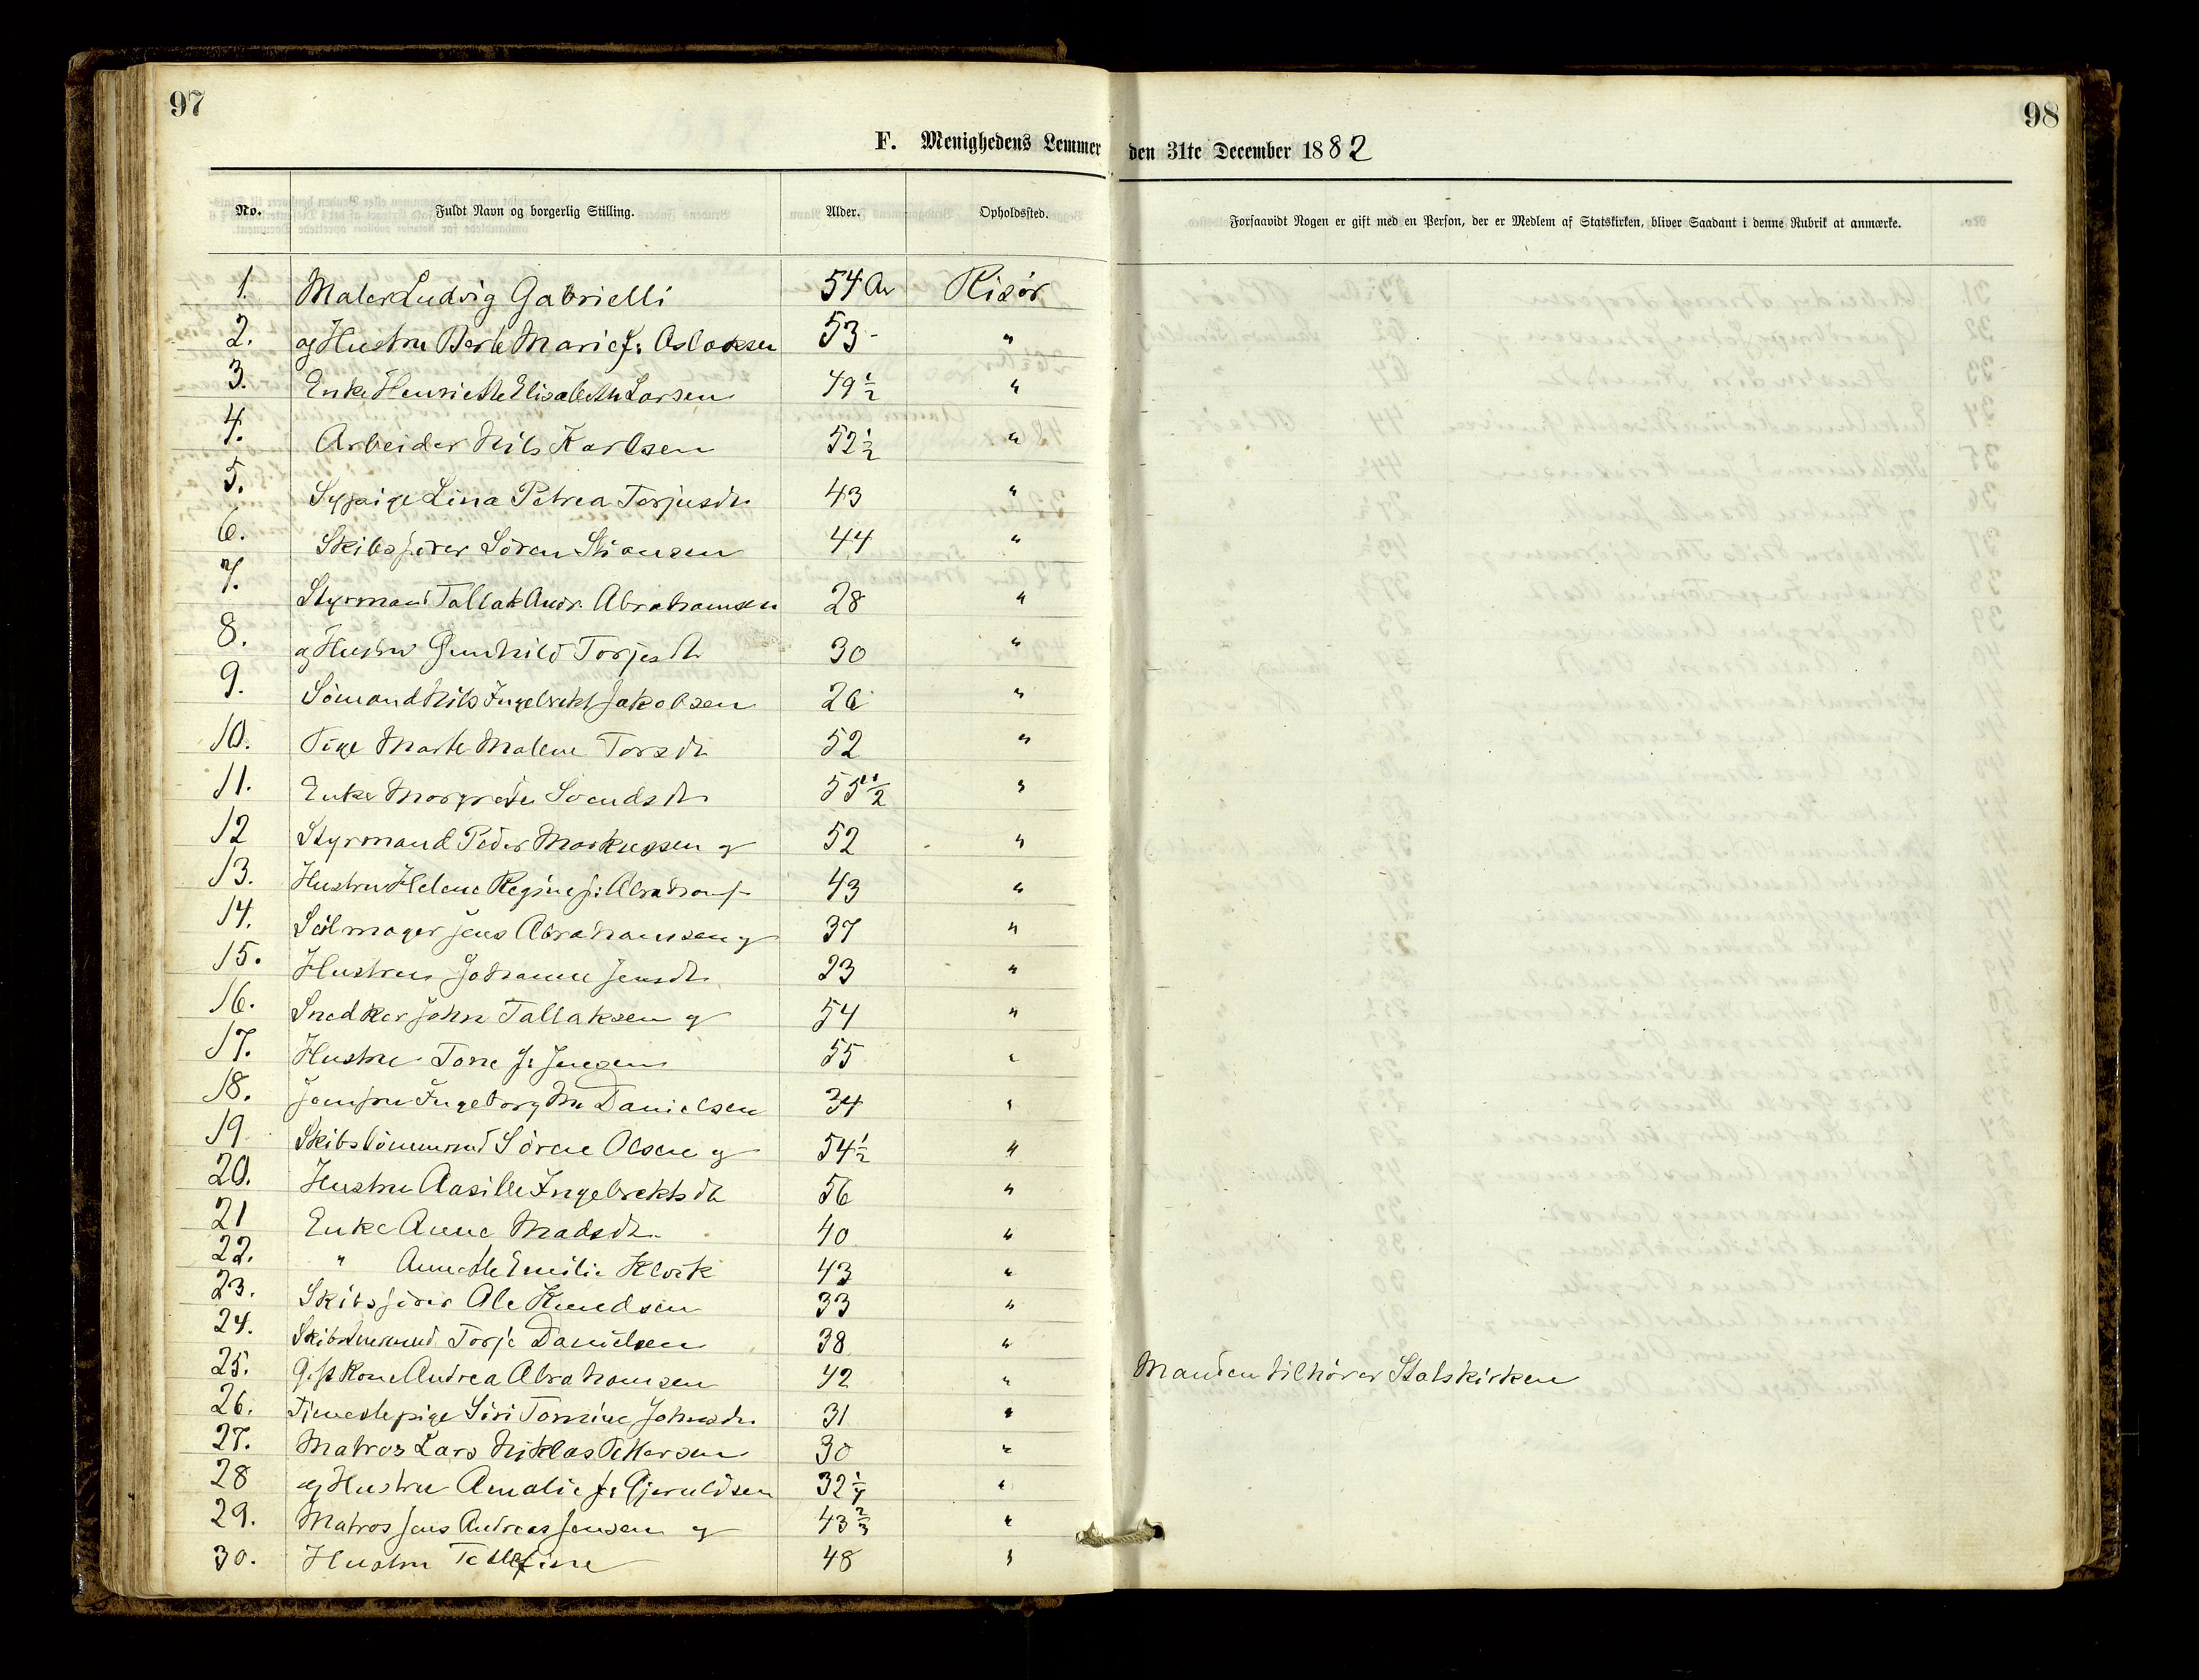 97
98
F. Menighedens Lemmer den 31te December 1882
No. Fuldt Navn og borgerlig Stilling. Alder. Opholdssted. Forsaavidt Nogen er gift med en Person, der er Medlem af Statskirken, bliver Saadant i denne Rubrik at anmærke.
1. Maler Ludvig Gabrielli 54 Aar Risør
2. og Hustru Berte Marie f: Aslaksen 53 - "
3. Enke Henriette Elisabeth Larsen 49 1/2 "
4. Arbeider Nils Karlsen 52 1/2 "
5. Sypige Lina Petrea Torjusdtr 43 "
6. Skibsfører Sören Stiansen 44 "
7. Styrmand Tallak Andr. Abrahamsen 28 "
8. og Hustru Gunhild Torjesdtr 30 "
9. Sömand Nils Ingebrekt Jakobsen 26 "
10. Pige Marte Malene Torsdtr 52 "
11. Enke Margrete Svendsdtr 55 1/2 "
12 Styrmand Peder Markussen og 52 "
13. Hustru Helene Regine f: Abrahams 43 "
14. Seilmager Jens Abrahamsen og 37 "
15. Hustru Johanne Jensdtr 23 "
16. Snedker John Tallaksen og 54 "
17. Hustru Tone f: Jensen 55 "
18. Jomfru Ingeborg M. Danielsen 34 "
19. Skibstömmermd Sören Olsen og 54 1/2 "
20. Hustru Aasille Ingebrektsdtr 56 "
21 Enke Anne Madsdtr 40 "
22. " Annette Emilie Klvik 43 "
23. Skibsfører Ole Knudsen 33 "
24. Torje Danielsen 38 "
25. Gift Kone Andrea Abrahamsen 42 " Manden tilhører Statskirken
26. Tjenestepige Siri Tomine Johnsdtr 31 "
27. Matros Lars Niklas Pettersen 30 "
28 og Hustru Amalie f: Gjeruldsen 32 1/4 "
29. Matros Jens Andreas Jensen og 43 2/3 "
30. Hustru Tellefine 48 "